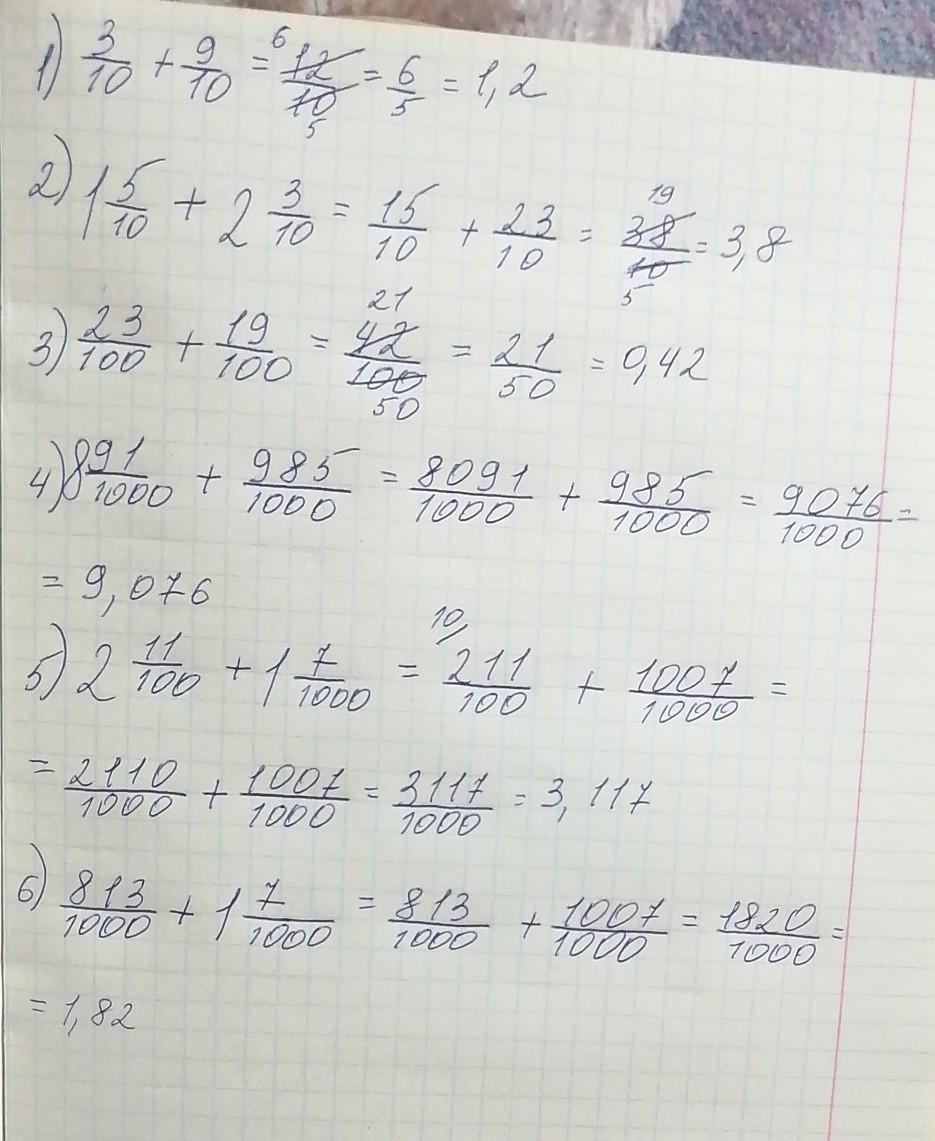 1) 3/10 + 9/10 = 12/10 = 6/5 = 1,2
2) 1 5/10 + 2 3/10 = 15/10 + 23/10 = 38/10 = 3,8
3) 23/100 + 19/100 = 42/100 = 21/50 = 0,42
4) 8 91/1000 + 985/1000 = 8091/1000 + 985/1000 = 9076/1000 =
= 9,076
5) 2 11/100 + 1 7/1000 = 10/ 211/100 + 1007/1000 =
= 2110/1000 + 1007/1000 = 3117/1000 = 3,117
6) 813/1000 + 1 7/1000 = 813/1000 + 1007/1000 = 1820/1000 =
= 1,82